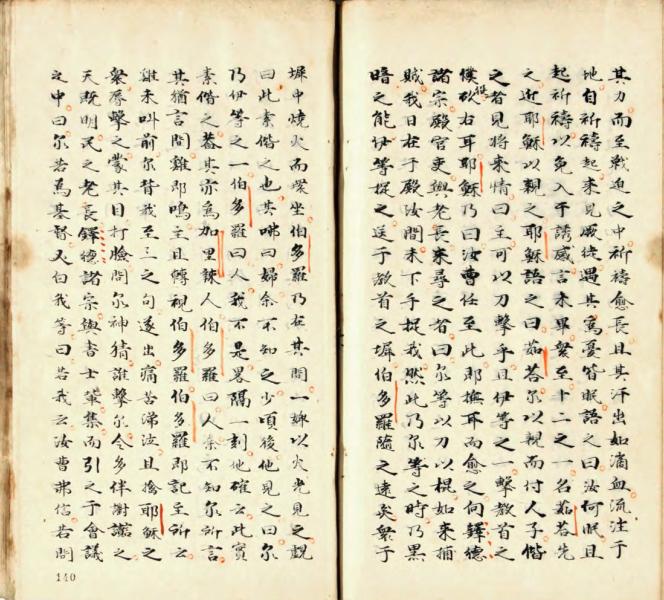 其力而至戰迫之中祈禱愈長且其汗出如滴血流注于
地自祈禱起來見厥徒遇其寓憂皆眠語之曰汝何眠且
起祈禱以免入于誘感言未畢眾至十二之一名茹荅先
之近耶穌以親之耶穌語之曰茹荅尔以親而付人子偕
之者見將來情曰主可以刀擊乎且伊等之一擊教首之
僕砍右耳耶穌乃曰汝曹任至此耶撫耳而愈之向鐸德
諸宗殿官吏與老長來尋之者曰尔等以刀以棍如來捕
賊我日在于殿汝間未下手捉我然此乃尔等之時乃黑
暗之能伊等捉之送于教首之墀伯多羅隨之遠矣眾于
墀中燒火而環坐伯多羅乃在其間一婢以火光見之覰
曰此素偕之也其咈曰婦余不知之少頃後他見之曰尔
乃伊等之一伯多羅曰人我不是畧隔一刻他確云此實
素偕之蓋其亦為加里辣人伯多羅曰人素不知尔所言
其猶言間雞即鳴主且轉視伯多羅伯多羅即記主所云
雞未叫前尔替我至三之句遂出痛苦涕泣且擒耶穌之
眾辱擊之蒙其目打臉問尔神猜誰擊尔今多伴謝之
天既明民之老長鐸德諸宗與書士輩集而引之于會議
之中曰尔若為基督又白我等曰若我云汝曹弗信若問
140